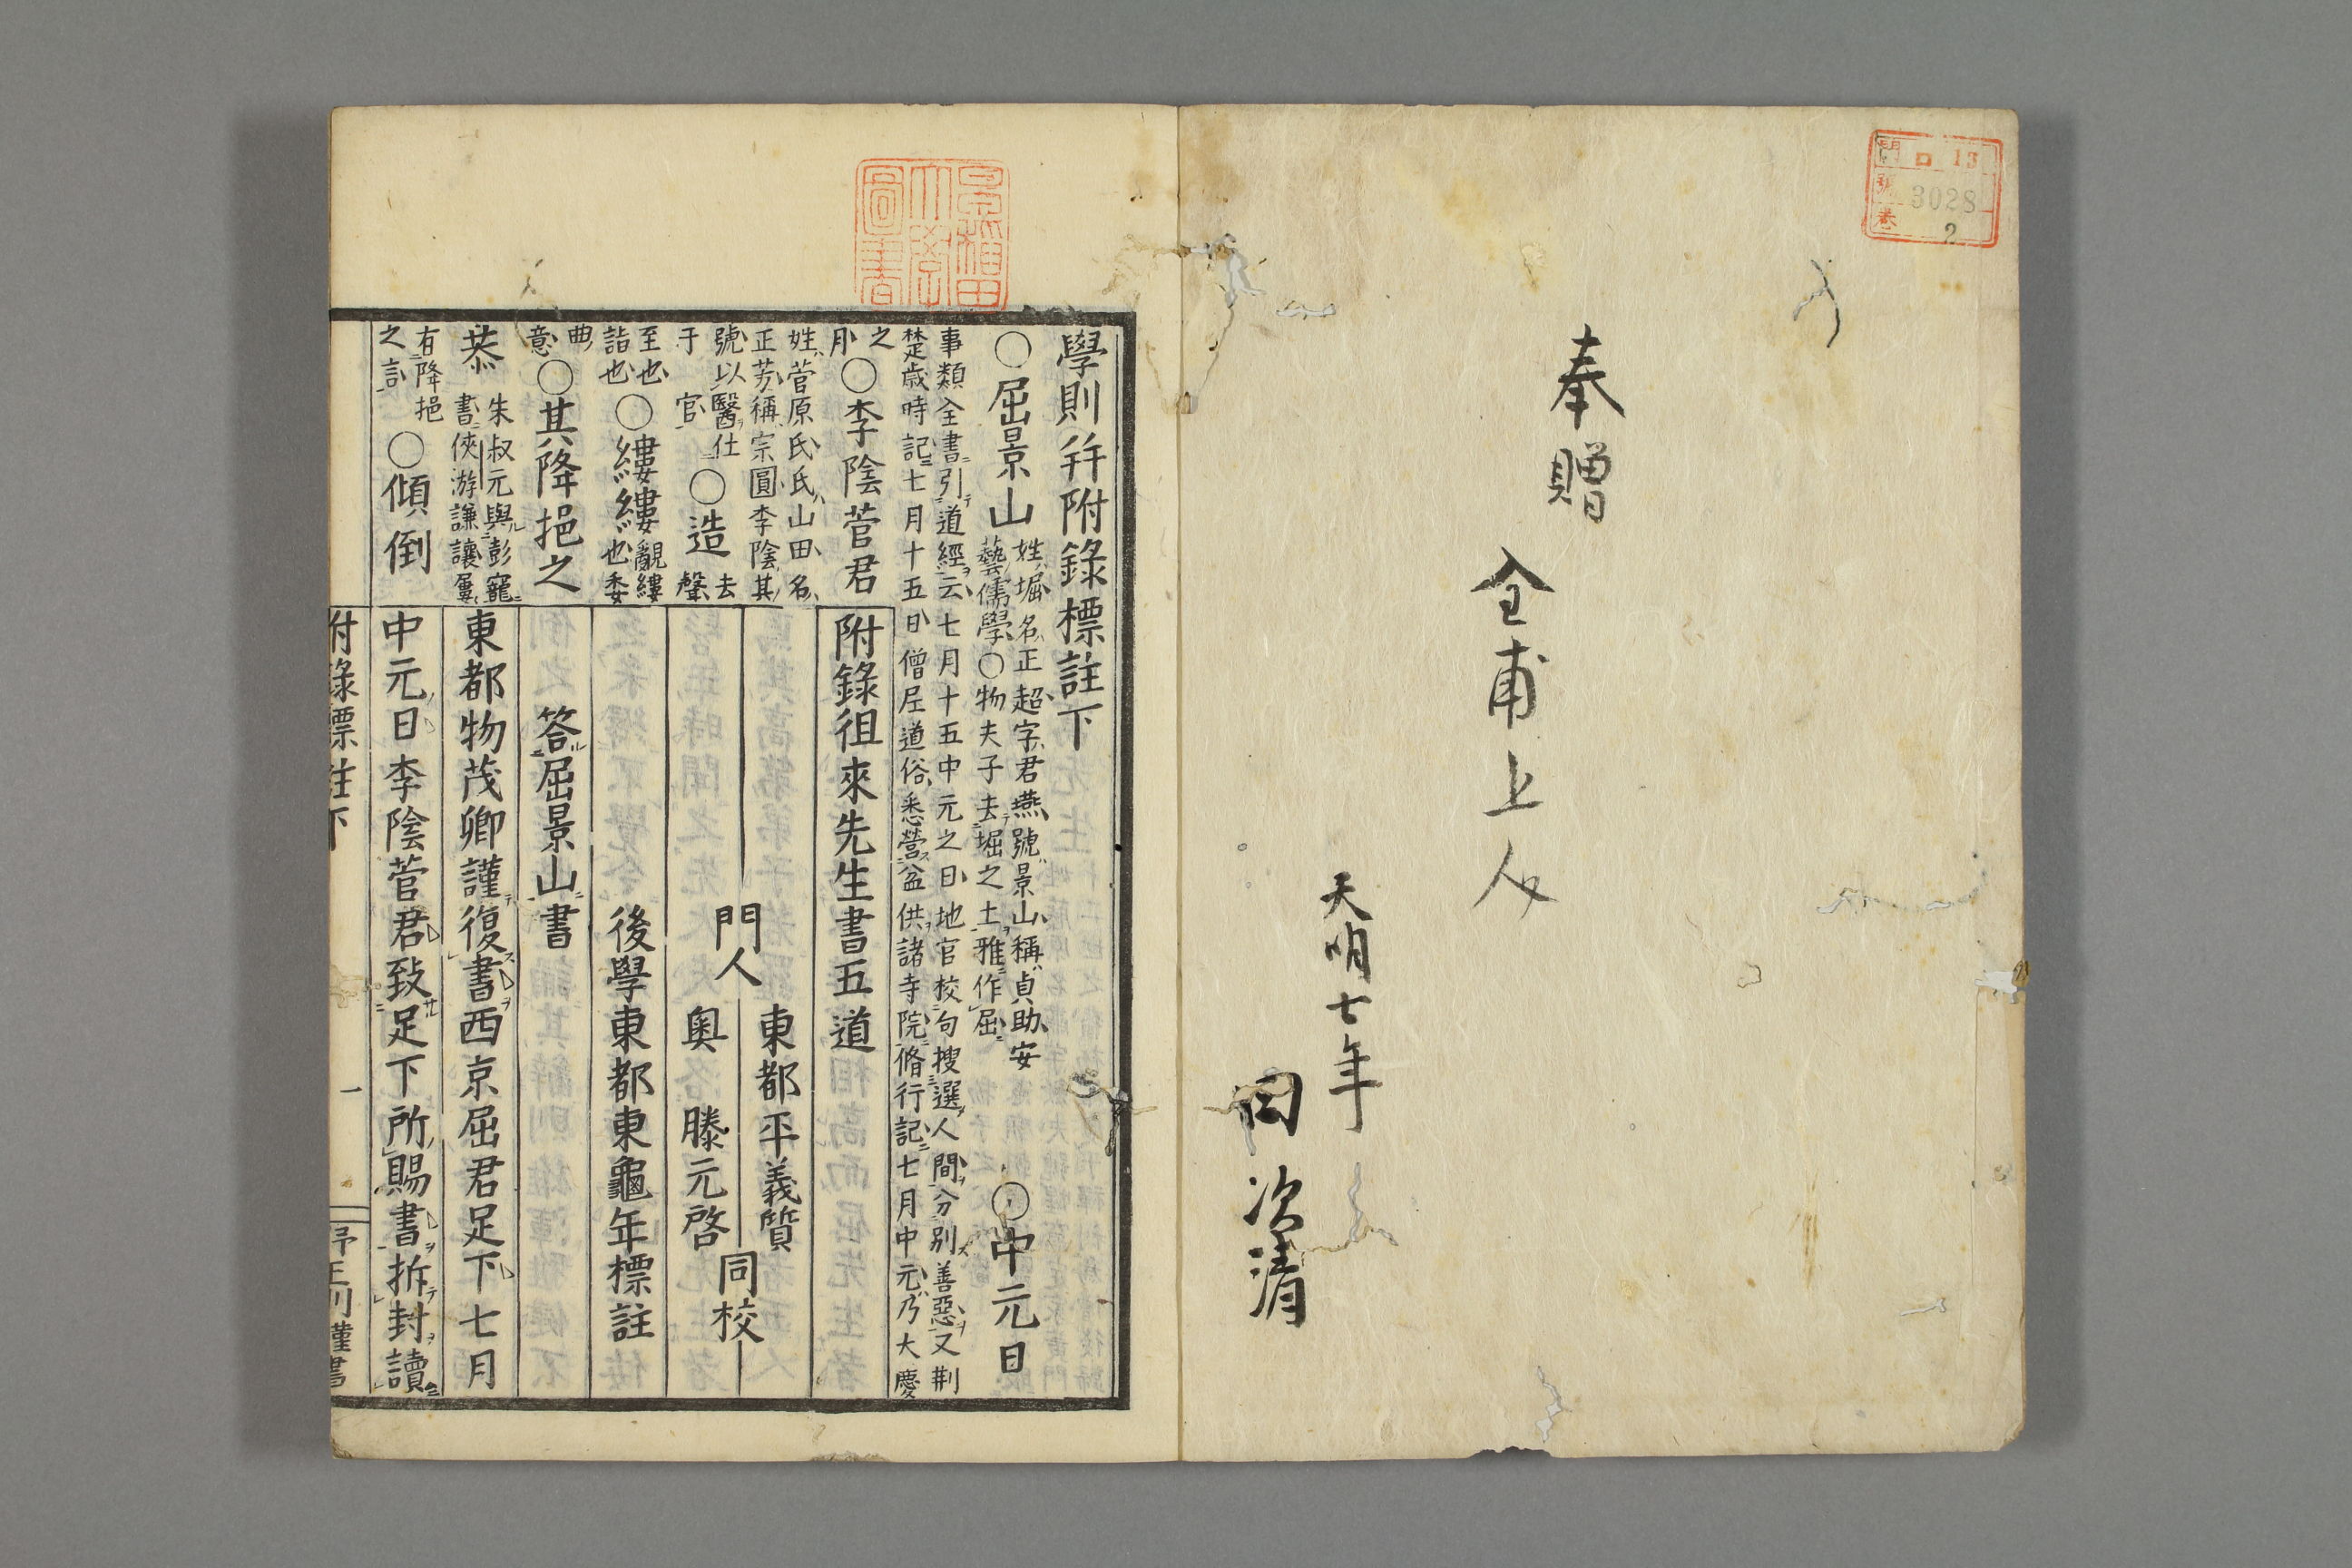 門 ロ 13
號 3028
卷 2
奉贈
全甫上人
天明七年
田次清
早稲田
大學
圖書
學則幷附錄標註下
○屈景山 姓堀名正超字君燕號景山稱貞助安
藝儒學○物夫子去堀之土雅作屈 ○中元日
事類全書引道經云七月十五中元之日地官校句搜選人間分別善惡又荆
楚歲時記七月十五日僧尼道俗悉營盆供諸寺院脩行記七月中元乃大慶
之
月○李陰菅君
姓菅原氏氏山田名
正芳稱宗圓李陰其
號以醫仕
于 官○造 去
聲
至也
詣也○縷縷 覼縷
也委
曲
意○其降挹之
恭 朱叔元與彭寵
書俠游謙讓屢
有降挹
之言○傾倒
附錄徂來先生書五道
門人 東都平義質
奧 滕元啓 同校
後學東都東龜年標註
答屈景山書
東都物茂卿謹復書西京屈君足下七月
中元日李陰菅君致足下所賜書拆封讀
附錄標註下 一